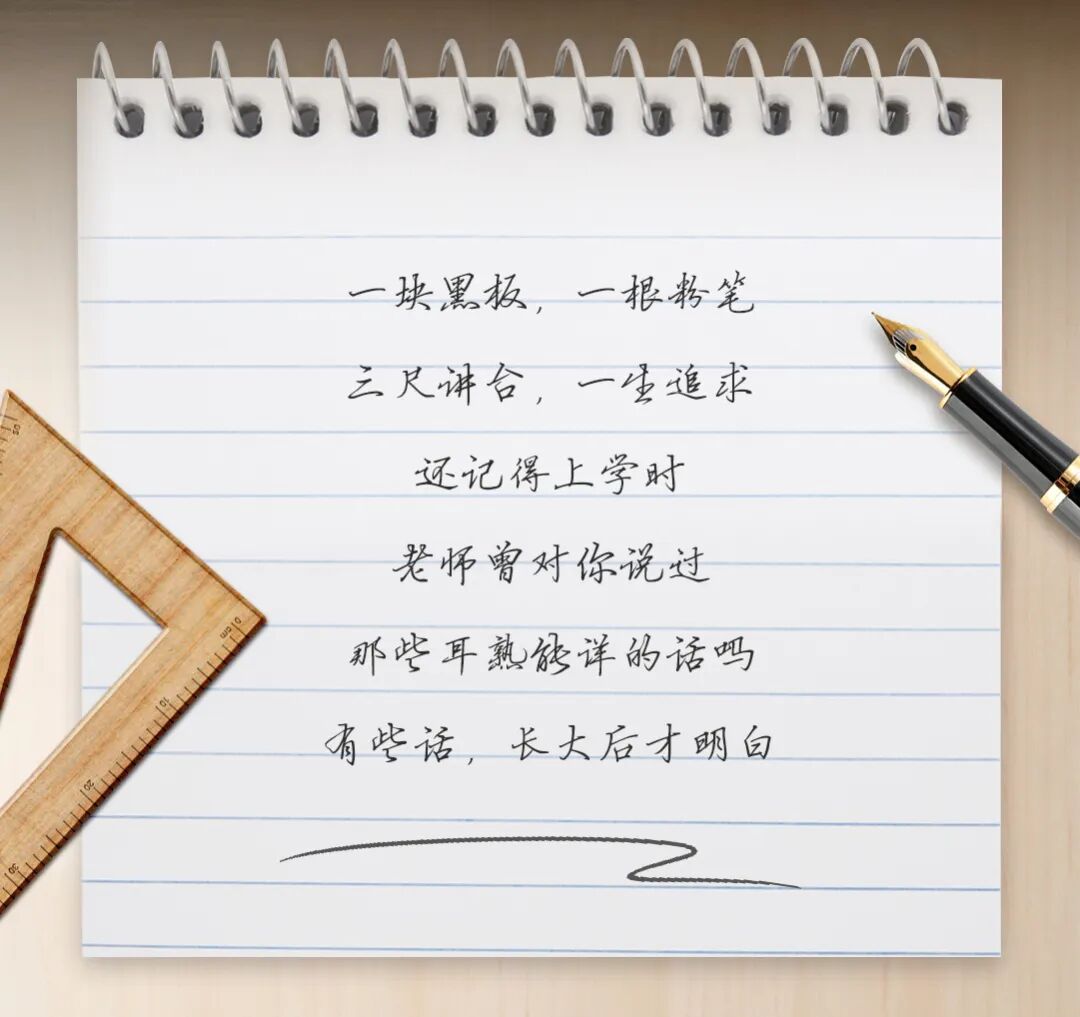 一块黑板，一根粉笔
三尺讲台，一生追求
还记得上学时
老师曾对你说过
那些耳熟能详的话吗
有些话，长大后才明白
0 cm
10
20
30